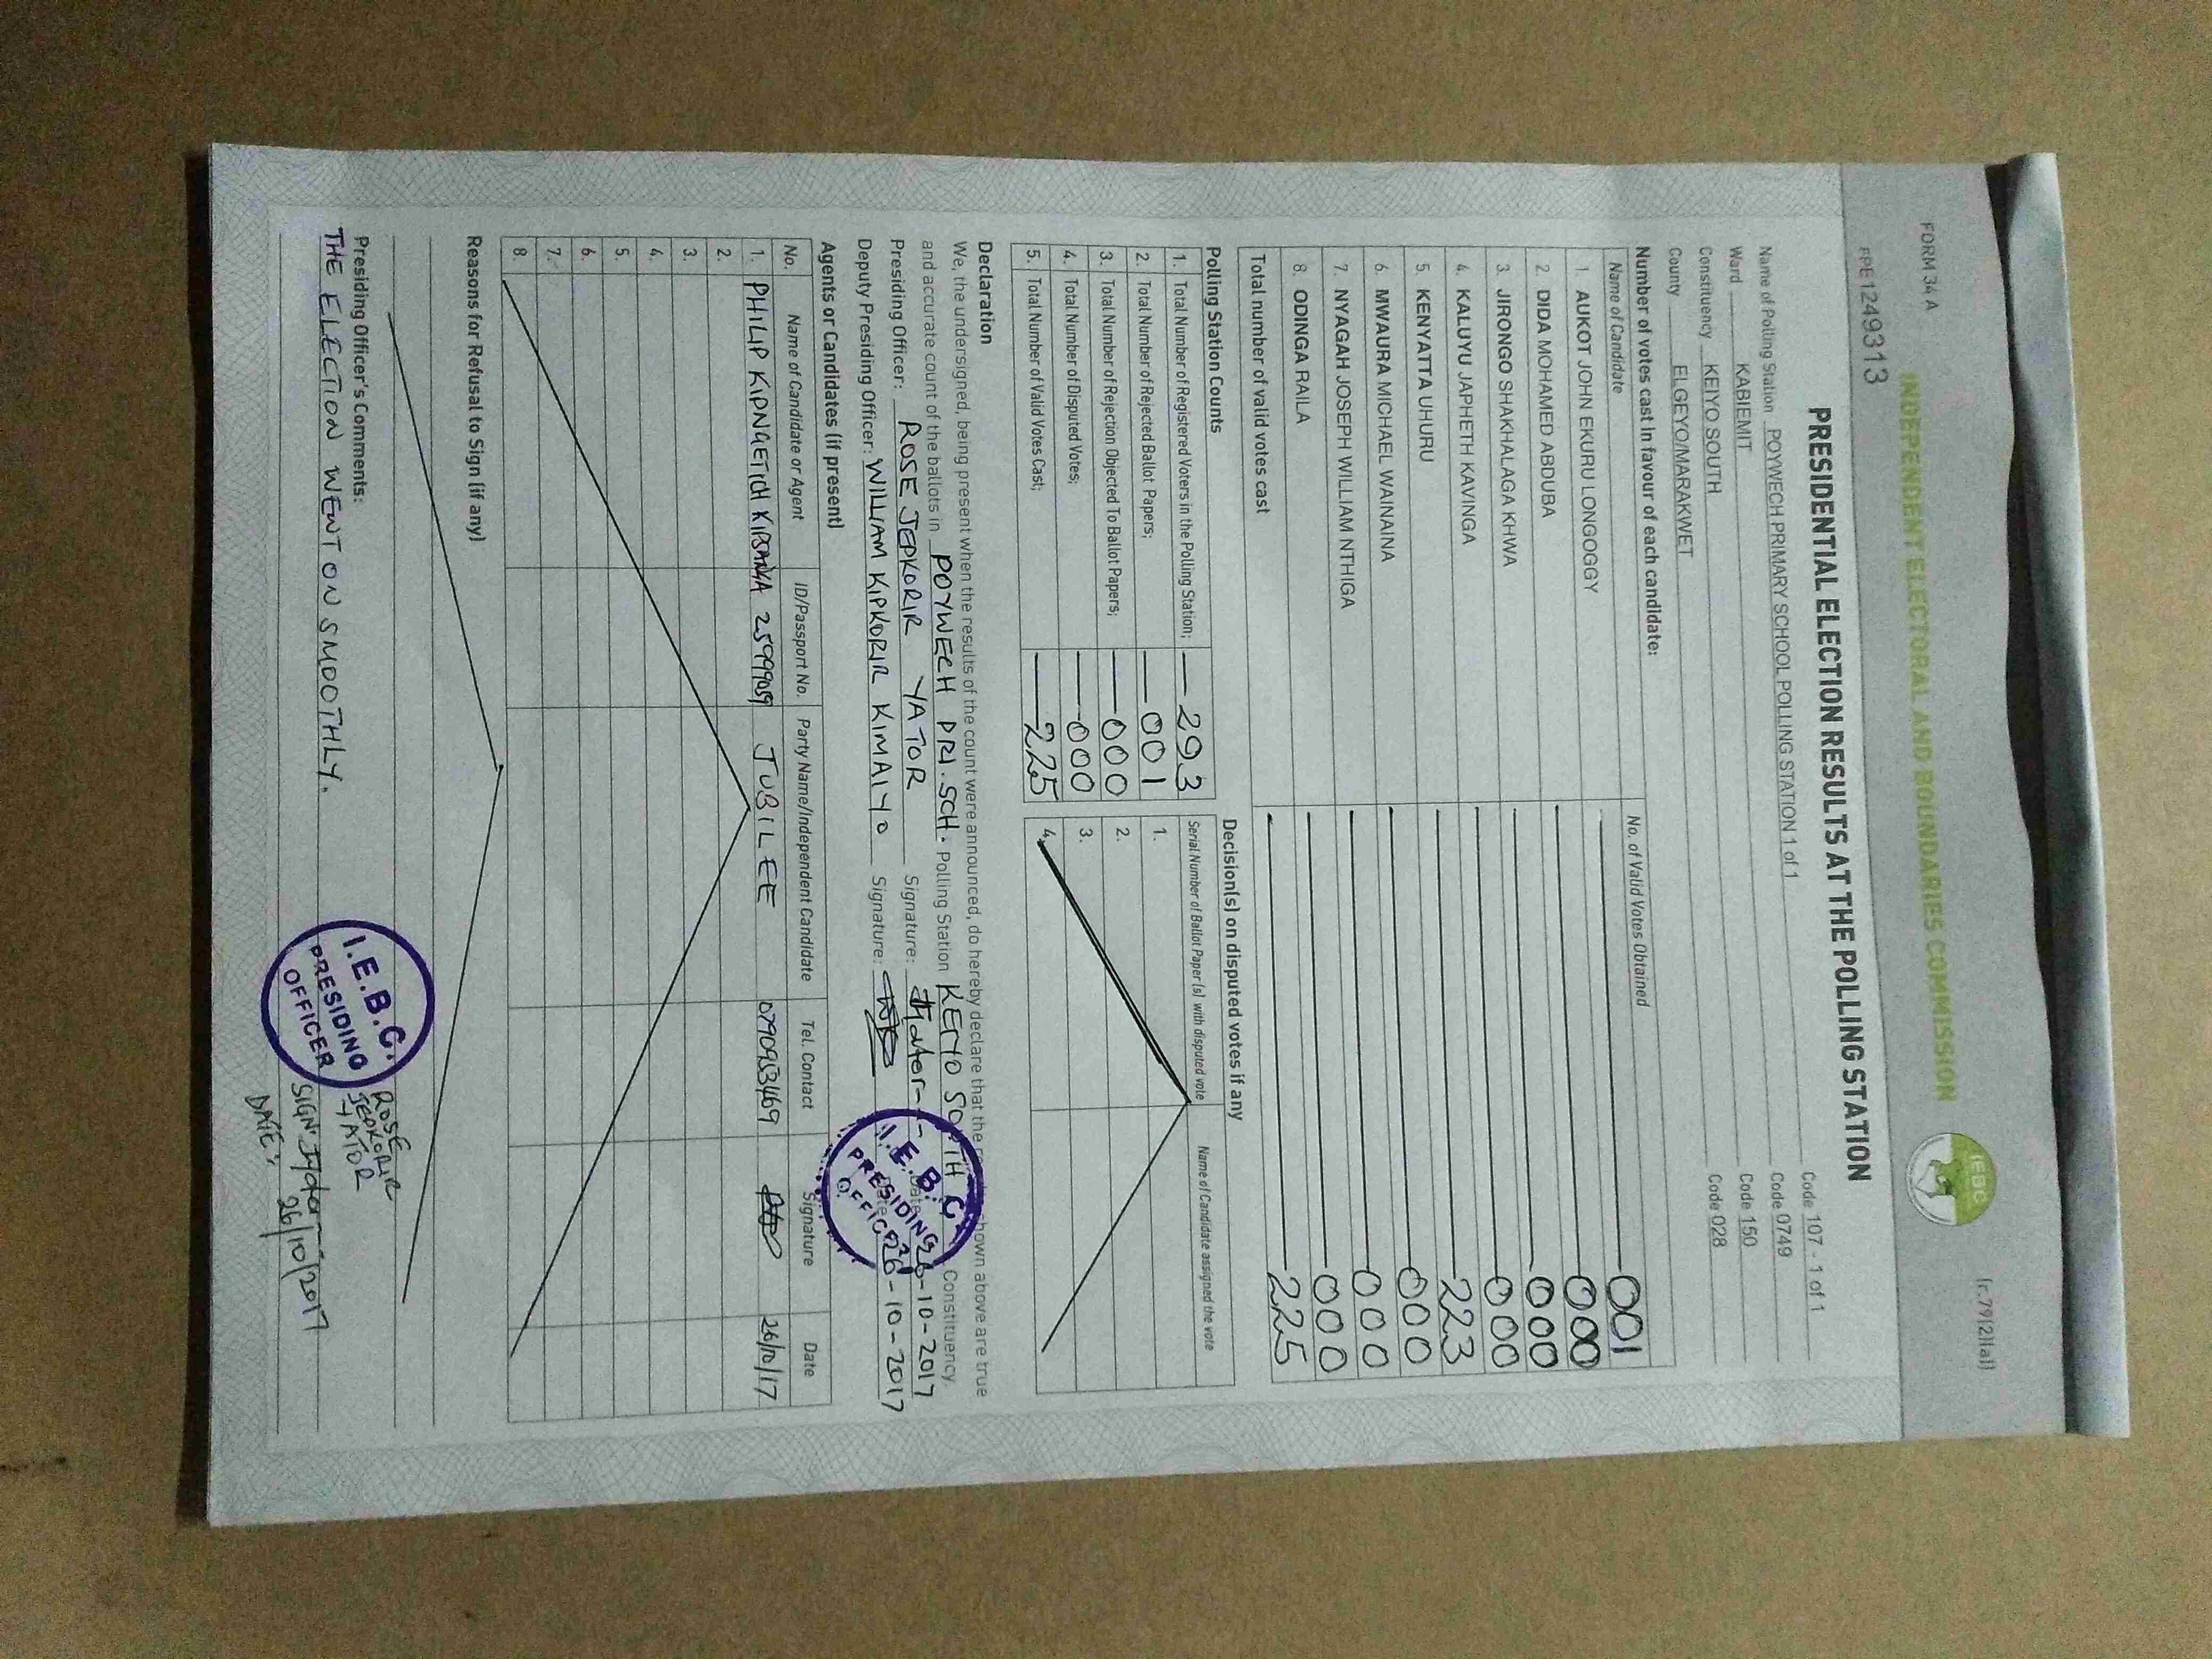 FORM 34 A
(r.79(2)(a))
INDEPENDENT ELECTORAL AND BOUNDARIES COMMISSION
IEBC
PRE1249313
PRESIDENTIAL ELECTION RESULTS AT THE POLLING STATION
Name of Polling Station POYWECH PRIMARY SCHOOL POLLING STATION 1 of 1 Code 107 - 1 of 1
Ward KABIEMIT Code 0749
Constituency KEIYO SOUTH Code 150
County ELGEYO/MARAKWET Code 028
Number of votes cast in favour of each candidate:
Name of Candidate No. of Valid Votes Obtained
1. AUKOT JOHN EKURU LONGOGGY 001
2. DIDA MOHAMED ABDUBA 000
3. JIRONGO SHAKHALAGA KHWA 000
4. KALUYU JAPHETH KAVINGA 000
5. KENYATTA UHURU 223
6. MWAURA MICHAEL WAINAINA 000
7. NYAGAH JOSEPH WILLIAM NTHIGA 000
8. ODINGA RAILA 000
Total number of valid votes cast 225
Polling Station Counts
1. Total Number of Registered Voters in the Polling Station; 293
2. Total Number of Rejected Ballot Papers; 001
3. Total Number of Rejection Objected To Ballot Papers; 000
4. Total Number of Disputed Votes; 000
5. Total Number of Valid Votes Cast; 225
Decision(s) on disputed votes if any
Serial Number of Ballot Paper (s) with disputed vote Name of Candidate assigned the vote
1.
2.
3.
4.
Declaration
We, the undersigned, being present when the results of the count were announced, do hereby declare that the shown above are true
and accurate count of the ballots in POYWECH PRI. SCH. Polling Station KEIYO SOUTH Constituency.
Presiding Officer: ROSE JEPKORIR YATOR Signature: Date 26-10-2017
Deputy Presiding Officer: WILLIAM KIPKORIR KIMAIYO Signature: Date 26-10-2017
I.E.B.C.
PRESIDING
OFFICER
Agents or Candidates (if present)
No. Name of Candidate or Agent ID/Passport No. Party Name/Independent Candidate Tel. Contact Signature Date
1. PHILIP KIPNGETICH KIBANYA 25999059 JUBILEE 0790953469 26/10/17
2.
3.
4.
5.
6.
7.
8.
Reasons for Refusal to Sign (if any)
Presiding Officer's Comments:
THE ELECTION WENT ON SMOOTHLY.
I.E.B.C.
PRESIDING
OFFICER
ROSE
JEPKORIR
YATOR
SIGN:
DATE: 26/10/2017